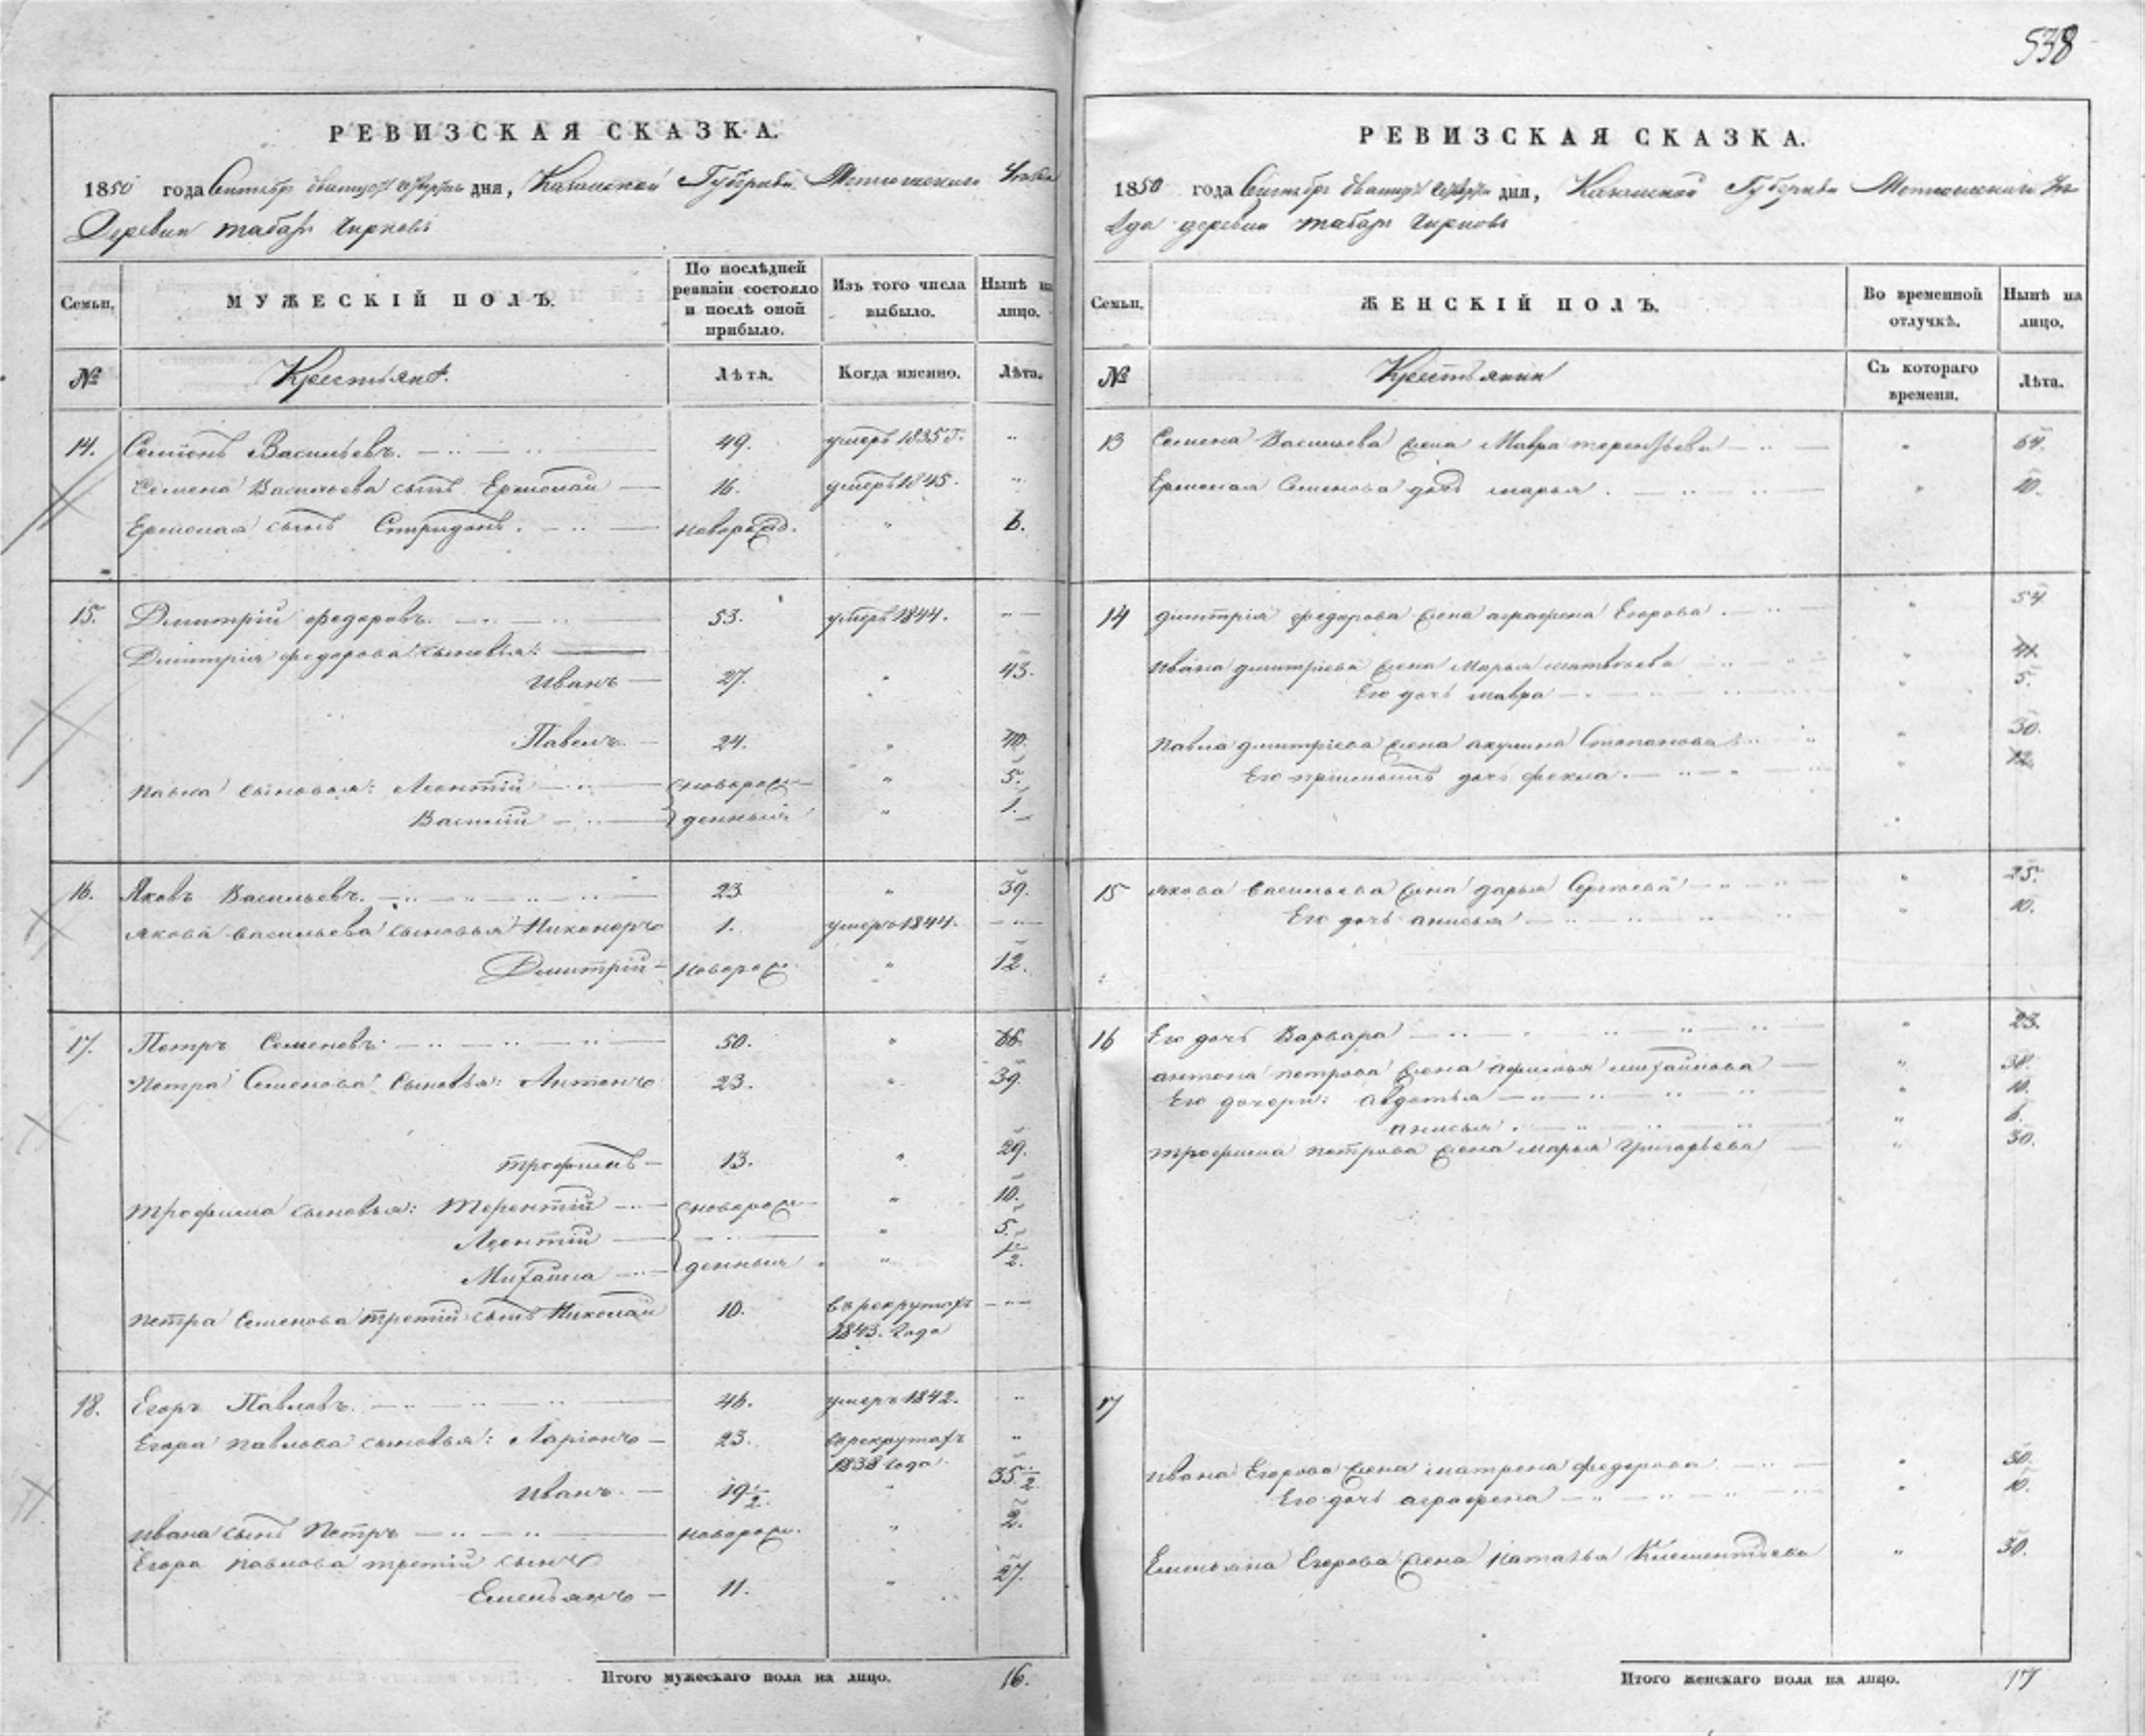 538
РЕВИЗСКАЯ СКАЗКА.
1850 года Сентябр дня, Казанской Губернiи Тетюшскаго Уѣзда
Деревни табар Чирковъ
Семьи.
МУЖЕСКIЙ ПОЛЪ.
По послѣдней ревизiи состояло и послѣ оной прибыло.
Изъ того числа выбыло.
Нынѣ на лицо.
№
Крестьянъ.
Лѣта.
Когда именно.
Лѣта.
14. Семiонъ Васильевъ. 49. умеръ 1835 г. "
Семена Васильева сынъ Ермолай 16. умеръ 1845. "
Ермолая сынъ Спиридонъ. новорожд. " 6.
15. Дмитрiй федоровъ. 53. умеръ 1844.
Дмитрiя федорова сыновья:
Иванъ 27. " 43.
Павелъ 24. " 40.
Павла сыновья: Леонтiй новорож- " 5.
Василiй денныя " 1.
16. Яковъ Васильевъ. 23 " 39.
Якова васильева сыновья Никаноръ 1. умеръ 1844.
Дмитрiй новорож. " 12.
17. Петръ Семеновъ 50. " 66.
Петра Семенова Сыновья: Антонъ 23. " 39.
трофимъ 13. " 29.
трофима сыновья: Терентiй новорож- " 10.
Леонтiй " 5.
Михайла денныя " 1/2.
Петра Семенова третiй сынъ Николай 10. въ рекрутах
1843. года
18. Егоръ Павловъ. 46. умеръ 1842. "
Егора павлова сыновья: Ларiонъ 23. в рекрутах "
1838 года
Иванъ. 19 1/2. " 35 1/2.
Ивана сынъ Петръ новорож. " 2.
Егора павлова третiй сынъ
Емельянъ 11. " 27.
Итого мужескаго пола на лицо. 16.
РЕВИЗСКАЯ СКАЗКА.
1850 года Сентябр дня, Казанской Губернiи Тетюшскаго Уѣ
зда деревни табар Чирковъ
Семьи.
ЖЕНСКIЙ ПОЛЪ.
Во временной отлучкѣ.
Нынѣ на лицо.
№
Крестьянки
Съ котораго времени.
Лѣта.
13 Семена Васильева жена Мавра терентьева " 64.
Ермолая Семенова дочь марья. " 10.
14 дмитрiя федорова жена аграфена Егорова. " 54
Ивана дмитрiева жена Марья матвѣева " 41.
Его дочь мавра " 5.
Павла дмитрiева жена акулина Степанова " 30.
Его прiемышъ дочь фекла. " 12.
15 якова васильева жена дарья Сергѣева " 25.
Его дочь анисья " 10.
16 Его дочь Варвара " 23.
антона петрова жена афимья михайлова " 38.
Его дочери: авдотья " 10.
анисья. " 6.
трофима петрова жена марья Григорьева " 30.
17
Ивана Егорова жена матрена федорова " 30.
Его дочь аграфена " 10.
Емельяна Егорова жена наталья Клементьева " 30.
Итого женскаго пола на лицо. 17